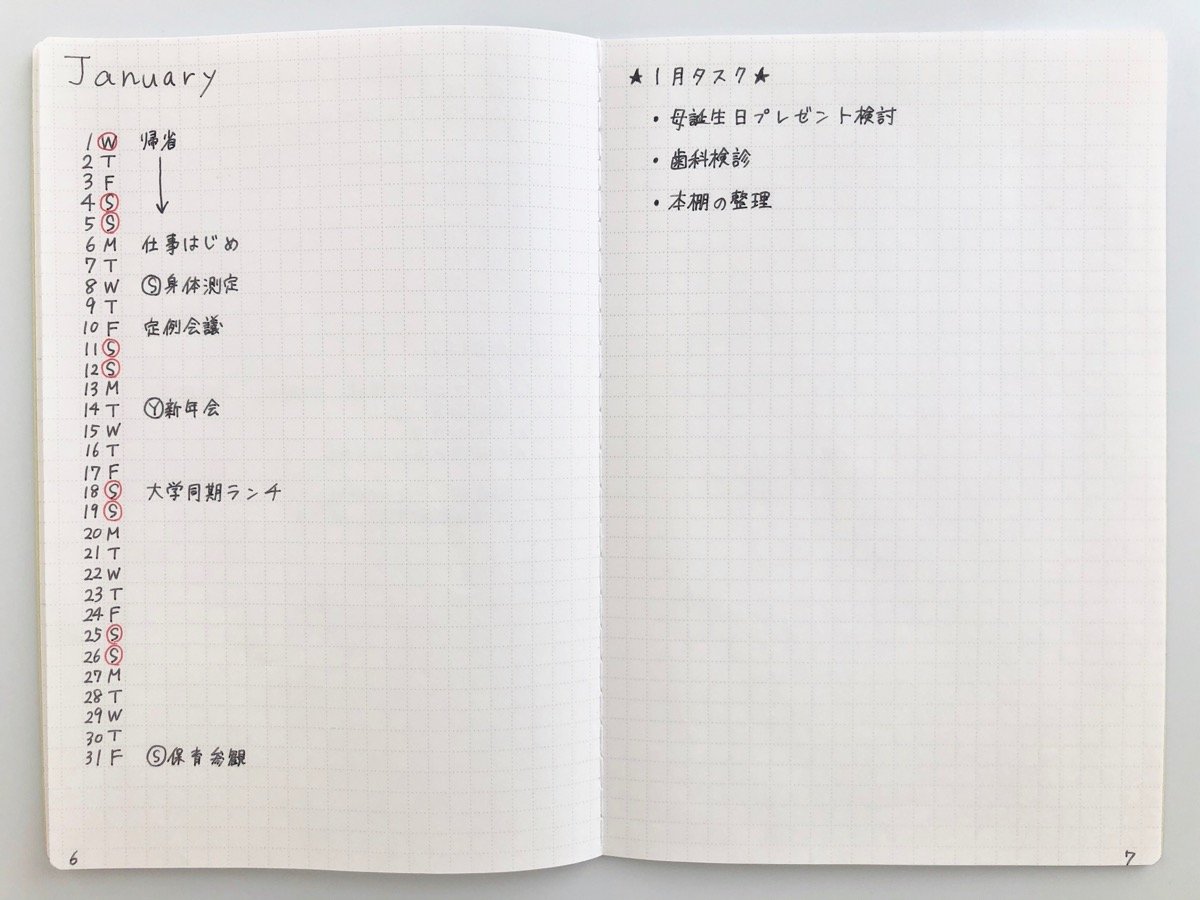 January
1 W 帰省
2 T
3 F
4 Ⓢ
5 Ⓢ
6 M 仕事はじめ
7 T
8 W Ⓢ身体測定
9 T
10 F 定例会議
11 Ⓢ
12 Ⓢ
13 M
14 T Ⓨ新年会
15 W
16 T
17 F
18 Ⓢ 大学同期ランチ
19 Ⓢ
20 M
21 T
22 W
23 T
24 F
25 Ⓢ
26 Ⓢ
27 M
28 T
29 W
30 T
31 F Ⓢ保育参観
6
★1月タスク★
・母誕生日プレゼント検討
・歯科検診
・本棚の整理
7